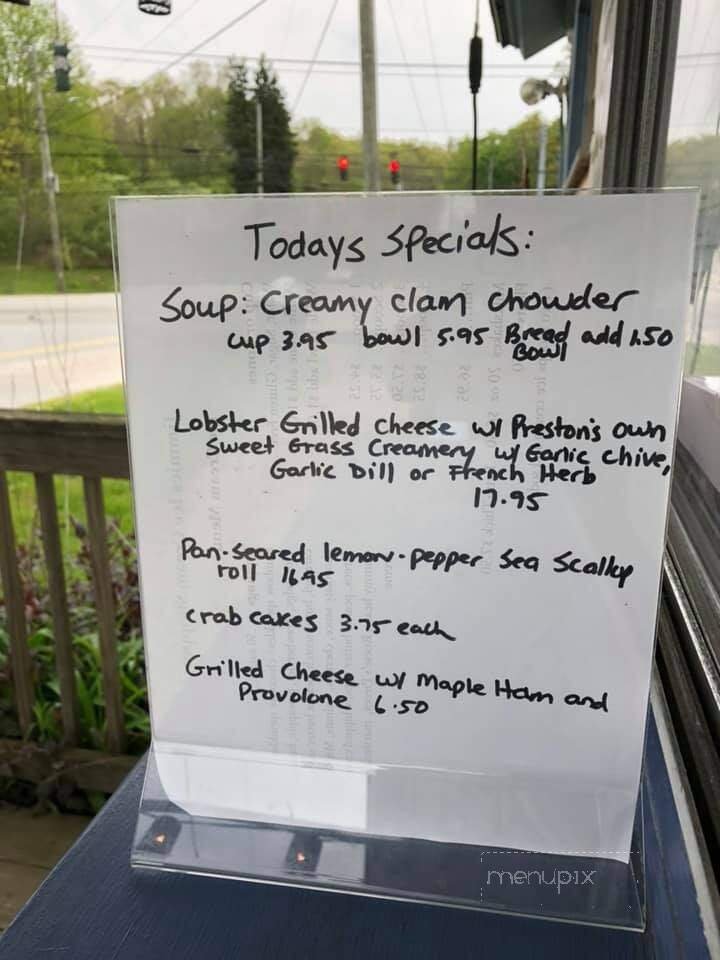 Todays Specials:
Soup: Creamy clam chowder
cup 3.95 bowl 5.95 Bread add 1.50
Bowl
Lobster Grilled cheese w/ Preston's own
Sweet Grass Creamery w/ Garlic Chive,
Garlic Dill or French Herb
17.95
Pan-Seared lemon-pepper Sea Scallop
roll 16.95
crab cakes 3.75 each
Grilled Cheese w/ Maple Ham and
Provolone 6.50
menupix